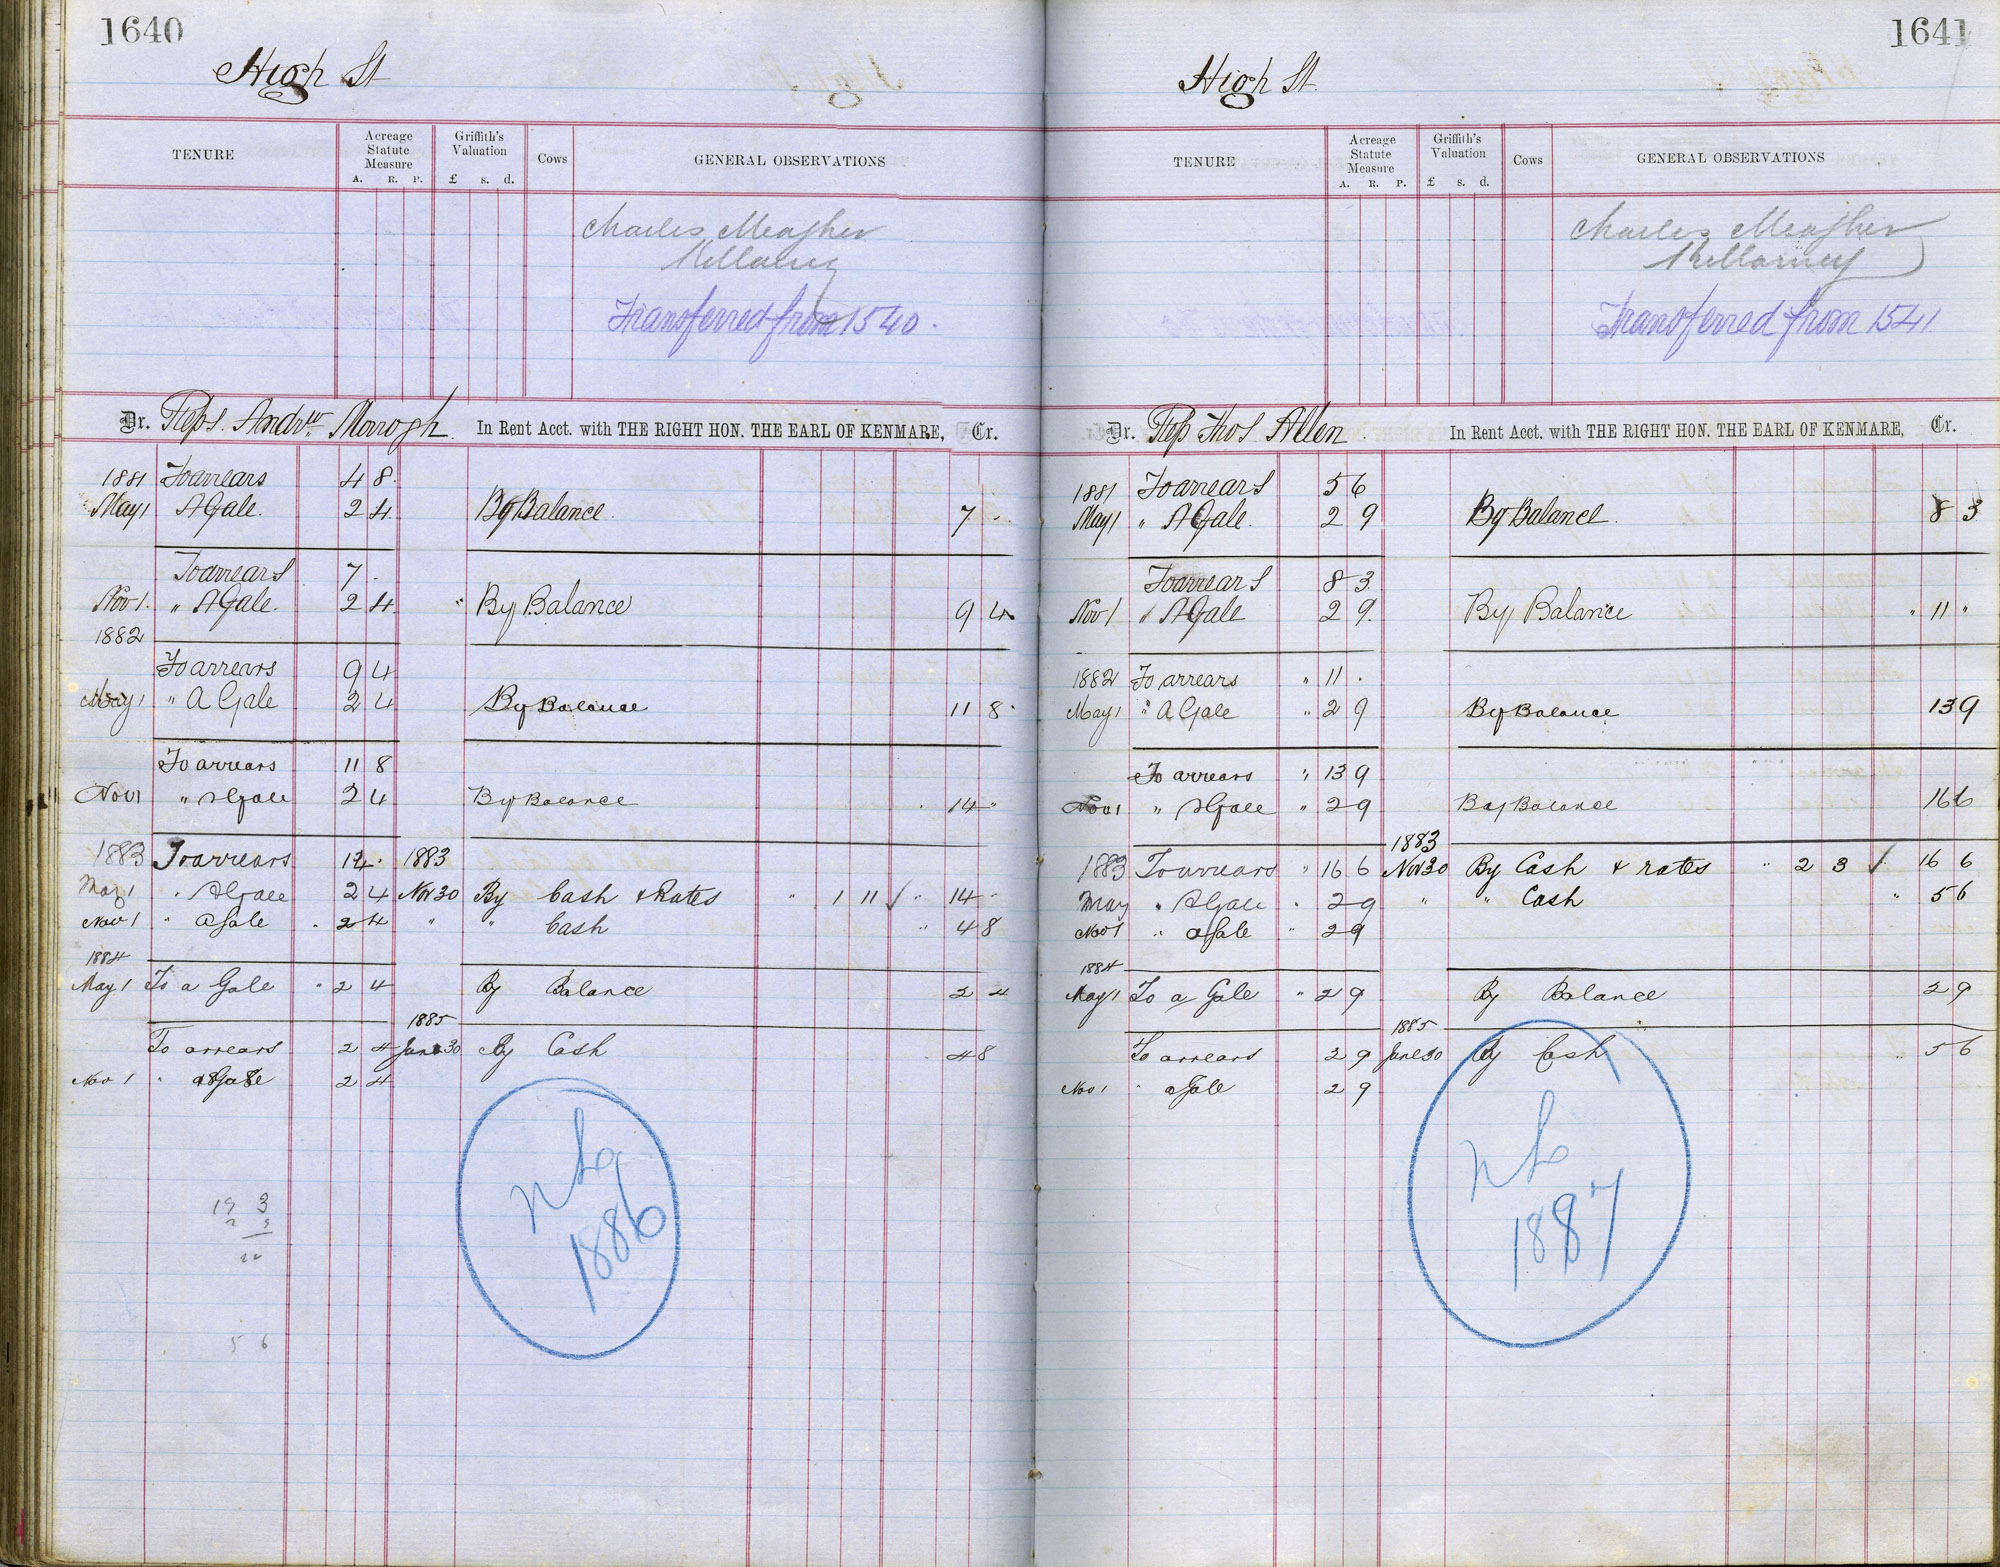 1640
High St
TENURE
Acreage Statute Measure
A. R. P.
Griffith's Valuation
£ s. d.
Cows
GENERAL OBSERVATIONS
Charles Meagher
Killarney
Transferred from 1540.
Dr. Reps. Andrw Morrogh. In Rent Acct. with THE RIGHT HON. THE EARL OF KENMARE, Cr.
1881 To arrears 4 8
May 1 " A Gale. 2 4 By Balance 7 "
To arrears 7 "
Nov 1. " A Gale. 2 4 " By Balance 9 4
1882
To arrears 9 4
May 1 " A Gale 2 4 By Balance 11 8
To arrears 11 8
Nov 1 " A Gale 2 4 By Balance 14 "
1883 To arrears 14 " 1883
May 1 " A Gale 2 4 Nov 30 By Cash & Rates " 1 11 ✓ " 14 "
Nov 1 " a Gale " 2 4 " " Cash " 4 8
1884
May 1 To a Gale " 2 4 By Balance 2 4
1885
To arrears 2 4 June 30 By Cash 4 8
Nov 1 " a Gale 2 4
1886
19 3
5 6
1641
High St.
TENURE
Acreage Statute Measure
A. R. P.
Griffith's Valuation
£ s. d.
Cows
GENERAL OBSERVATIONS
Charles Meagher
Killarney
Transferred from 1541
Dr. Rep Thos Allen. In Rent Acct. with THE RIGHT HON. THE EARL OF KENMARE, Cr.
1881 To arrears 5 6
May 1 " A Gale. 2 9 By Balance. 8 3
To arrears 8 3
Nov 1 " A Gale 2 9. By Balance " 11 "
1882 To arrears " 11 "
May 1 " A Gale " 2 9 By Balance 13 9
To arrears " 13 9
Nov 1 " A Gale " 2 9 By Balance 16 6
1883
1883 To arrears " 16 6 Nov 30 By Cash & rates " 2 3 ✓ " 16 6
May " A Gale " 2 9 " " Cash " 5 6
Nov 1 " a Gale " 2 9
1884
May 1 To a Gale " 2 9 By Balance 2 9
1885
To arrears 2 9 June 30 By Cash " 5 6
Nov 1 " a Gale 2 9
1887